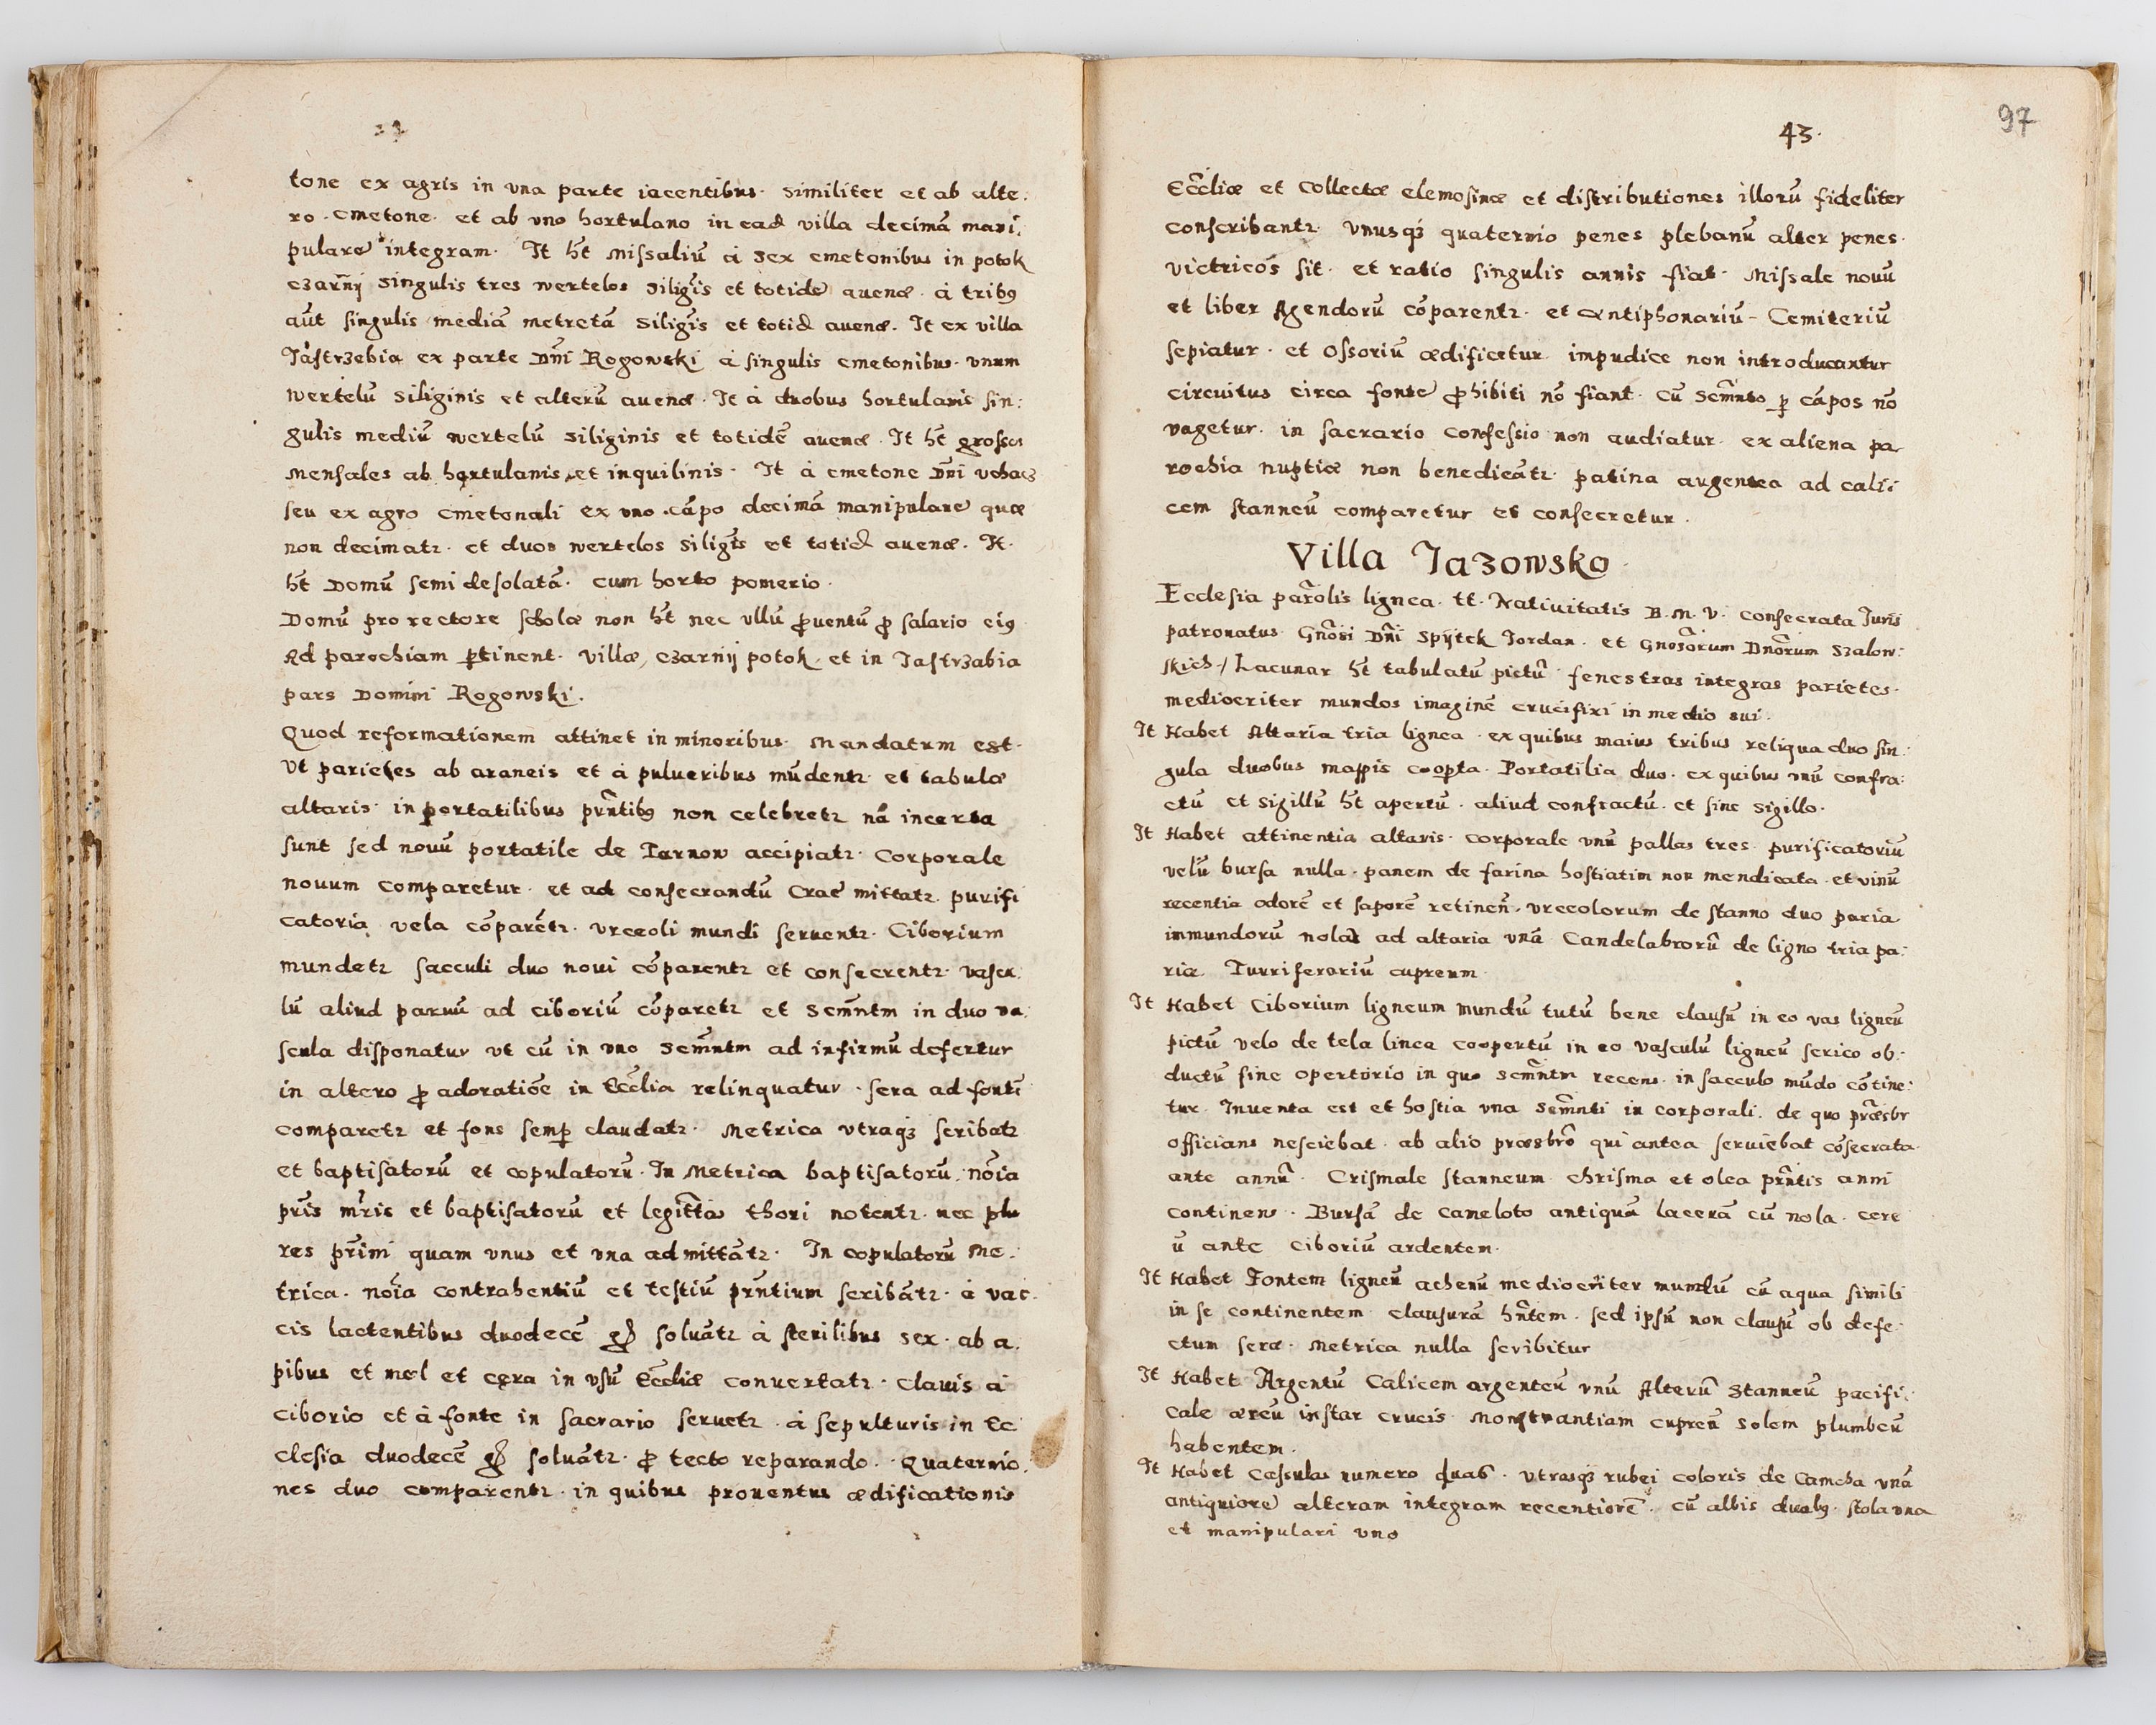 tone ex agris in vna parte iacentibus. similiter et ab alte:
ro. cmetone. et ab vno hortulano in ead villa decimā mani,
pulare integram. It ht̄ missaliū à sex cmetonibus in potok
czarnÿ singulis tres wertelos siligīs et totidē auenæ. à tribꝯ
aūt singulis mediā metretā siligīs et totid auenæ. It ex villa
Jastrzebia ex parte Dn̄i Rogowski à singulis cmetonibus. vnum
wertelū siliginis et alterū auenæ. It à duobus hortulanis sin:
gulis mediū wertelū siliginis et totidē auenæ. It ht̄ grosses
mensales ab hortulanis et inquilinis. It à cmetone Dn̄i
seu ex agro cmetonali ex vno cāpo decimā manipularē quæ
non decimatꝛ. et duos wertelos siligīs et totid auenæ. It.
ht̄ Domū semi desolatā. cum horto pomerio.
Domū pro rectore scholæ non ht̄ nec vllū ꝓuentū ꝓ salario eiꝯ
Ad parochiam ꝑtinent. villæ, czarnÿ potok, et in Jastrzabia
pars Domini Rogowski.
Quod reformationem attinet in minoribus. Mandatum est.
Vt parietes ab araneis et à pulueribus mūdentꝛ. et tabulæ
altaris. in portatilibus pn̄tibꝯ non celebretꝛ nā incerta
sunt sed nouū portatile de Tarnow accipiatꝛ. Corporale
nouum comparetur. et ad consecrandū Crac mittatꝛ. purifi
catoria vela cōparētꝛ. vrceoli mundi seruentꝛ. Ciborium
mundetꝛ sacculi duo noui cōparentꝛ et consecrentꝛ. vascu:
lū aliud paruū ad ciboriū cōparetꝛ et sc̄mntm in duo va:
scula disponatur vt cū in vno sc̄mntm ad infirmū defertur
in altero ꝓ adoratiōe in Ec̄clia relinquatur. sera ad fontē
comparetꝛ et fons semꝑ claudatꝛ. Metrica vtraqꝫ scribatꝛ
et baptisatorū et copulatorū. In Metrica baptisatorū. nōia
pr̄is mr̄is et baptisatorū et legitta thori notentꝛ. nec plu
res pr̄imi quam vnus et vna admittātꝛ. In copulatorū Me:
trica. nōia contrahentiū et testiū prn̄tium scribātꝛ. à vac:
cis lactentibus duodecē gꝭ soluātꝛ à sterilibus sex. ab a:
pibus et mel et cera in vsū Ec̄cliæ conuertatꝛ. clauis à
ciborio et à fonte in sacrario seruetꝛ. à sepulturis in Ec
clesia duodecē gꝭ soluātꝛ. ꝓ tecto reparando. Quaternio:
nes duo comparentꝛ. in quibus prouentus ædificationis
43.
97
Ec̄cliæ et Collectæ elemosinæ et distributiones illorū fideliter
conscribantꝛ. vnusqꝫ quaternio penes plebanū alter penes.
victricos sit. et ratio singulis annis fiat. Missale nouū
et liber Agendorū cōparentꝛ. et Antiphonariū - Cemiteriū
sepiatur. et Ossoriū ædificetur impudice non introducantur
circuitus circa fontē ꝓhibiti nō fiant. cū sc̄mnto ꝑ cāpos nō
vagetur. in sacrario confessio non audiatur. ex aliena pa
rochia nuptiæ non benedicātꝛ. patina argentea ad cali:
cem stanneū comparetur et consecretur.
Villa Jazowsko
Ecclesia parōlis lignea. tt. Natiuitatis B. M. V. consecrata Juris
patronatus Gn̄osi Dn̄i Spÿtek Jordan. et Gnosōrum Dnōrum Szalow:
skich./ Lacunar ht̄ tabulatū pictū fenestras integras parietes.
mediocriter mundos imaginē crucifixi in medio sui.
It Habet Altaria tria lignea. ex quibus maius tribus reliqua duo sin:
gula duobus mappis cooꝑta. Portatilia duo. ex quibus vnū confra:
ctū et sigillū ht̄ apertū. aliud confractū. et sine sigillo.
It Habet attinentia altaris. corporale vnū pallas tres purificatoriū
velū bursa nulla. panem de farina hostiatim non mendicata. et vinū
recentia odorē et saporē retinen̄. vrceolorum de stanno duo paria
inmundorū nolas ad altaria vnā. Candelabrorū de ligno tria pa:
ria. Turriferariū cupreum.
It Habet Ciborium ligneum mundū tutū bene clausū in eo vas ligneū
pictū velo de tela linea coopertū in eo vasculū ligneū serico ob:
ductū sine opertorio in quo sc̄mntm recens. in sacculo mūdo cōtine:
tur. Inuenta est et hostia vna sc̄mnti in corporali. de quo præsbr
officians nesciebat. ab alio præsbrō qui antea seruiebat cōsecrata
ante annū. Crismale stanneum chrisma et olea prn̄tis anni
continens. Bursā de cameloto antiquā lacerā cū nola. cere
ū ante ciboriū ardentem.
It Habet Fontem ligneū acherū mediocriter mundū cū aqua simili
in se continentem clausurā hn̄tem. sed ipsū non clausū ob defe:
ctum seræ. Metrica nulla scribitur
It Habet Argentū Calicem argenteū vnū Alterū stanneū pacifi:
cale æreū instar crucis Monstrantiam cupreū solem plumbeū
habentem.
It Habet Casulas numero duas. vtrasqꝫ rubei coloris de Camcha vnā
antiquiorē alteram integram recentiorē. cū albis duabꝯ. stola vna
et manipulari vno